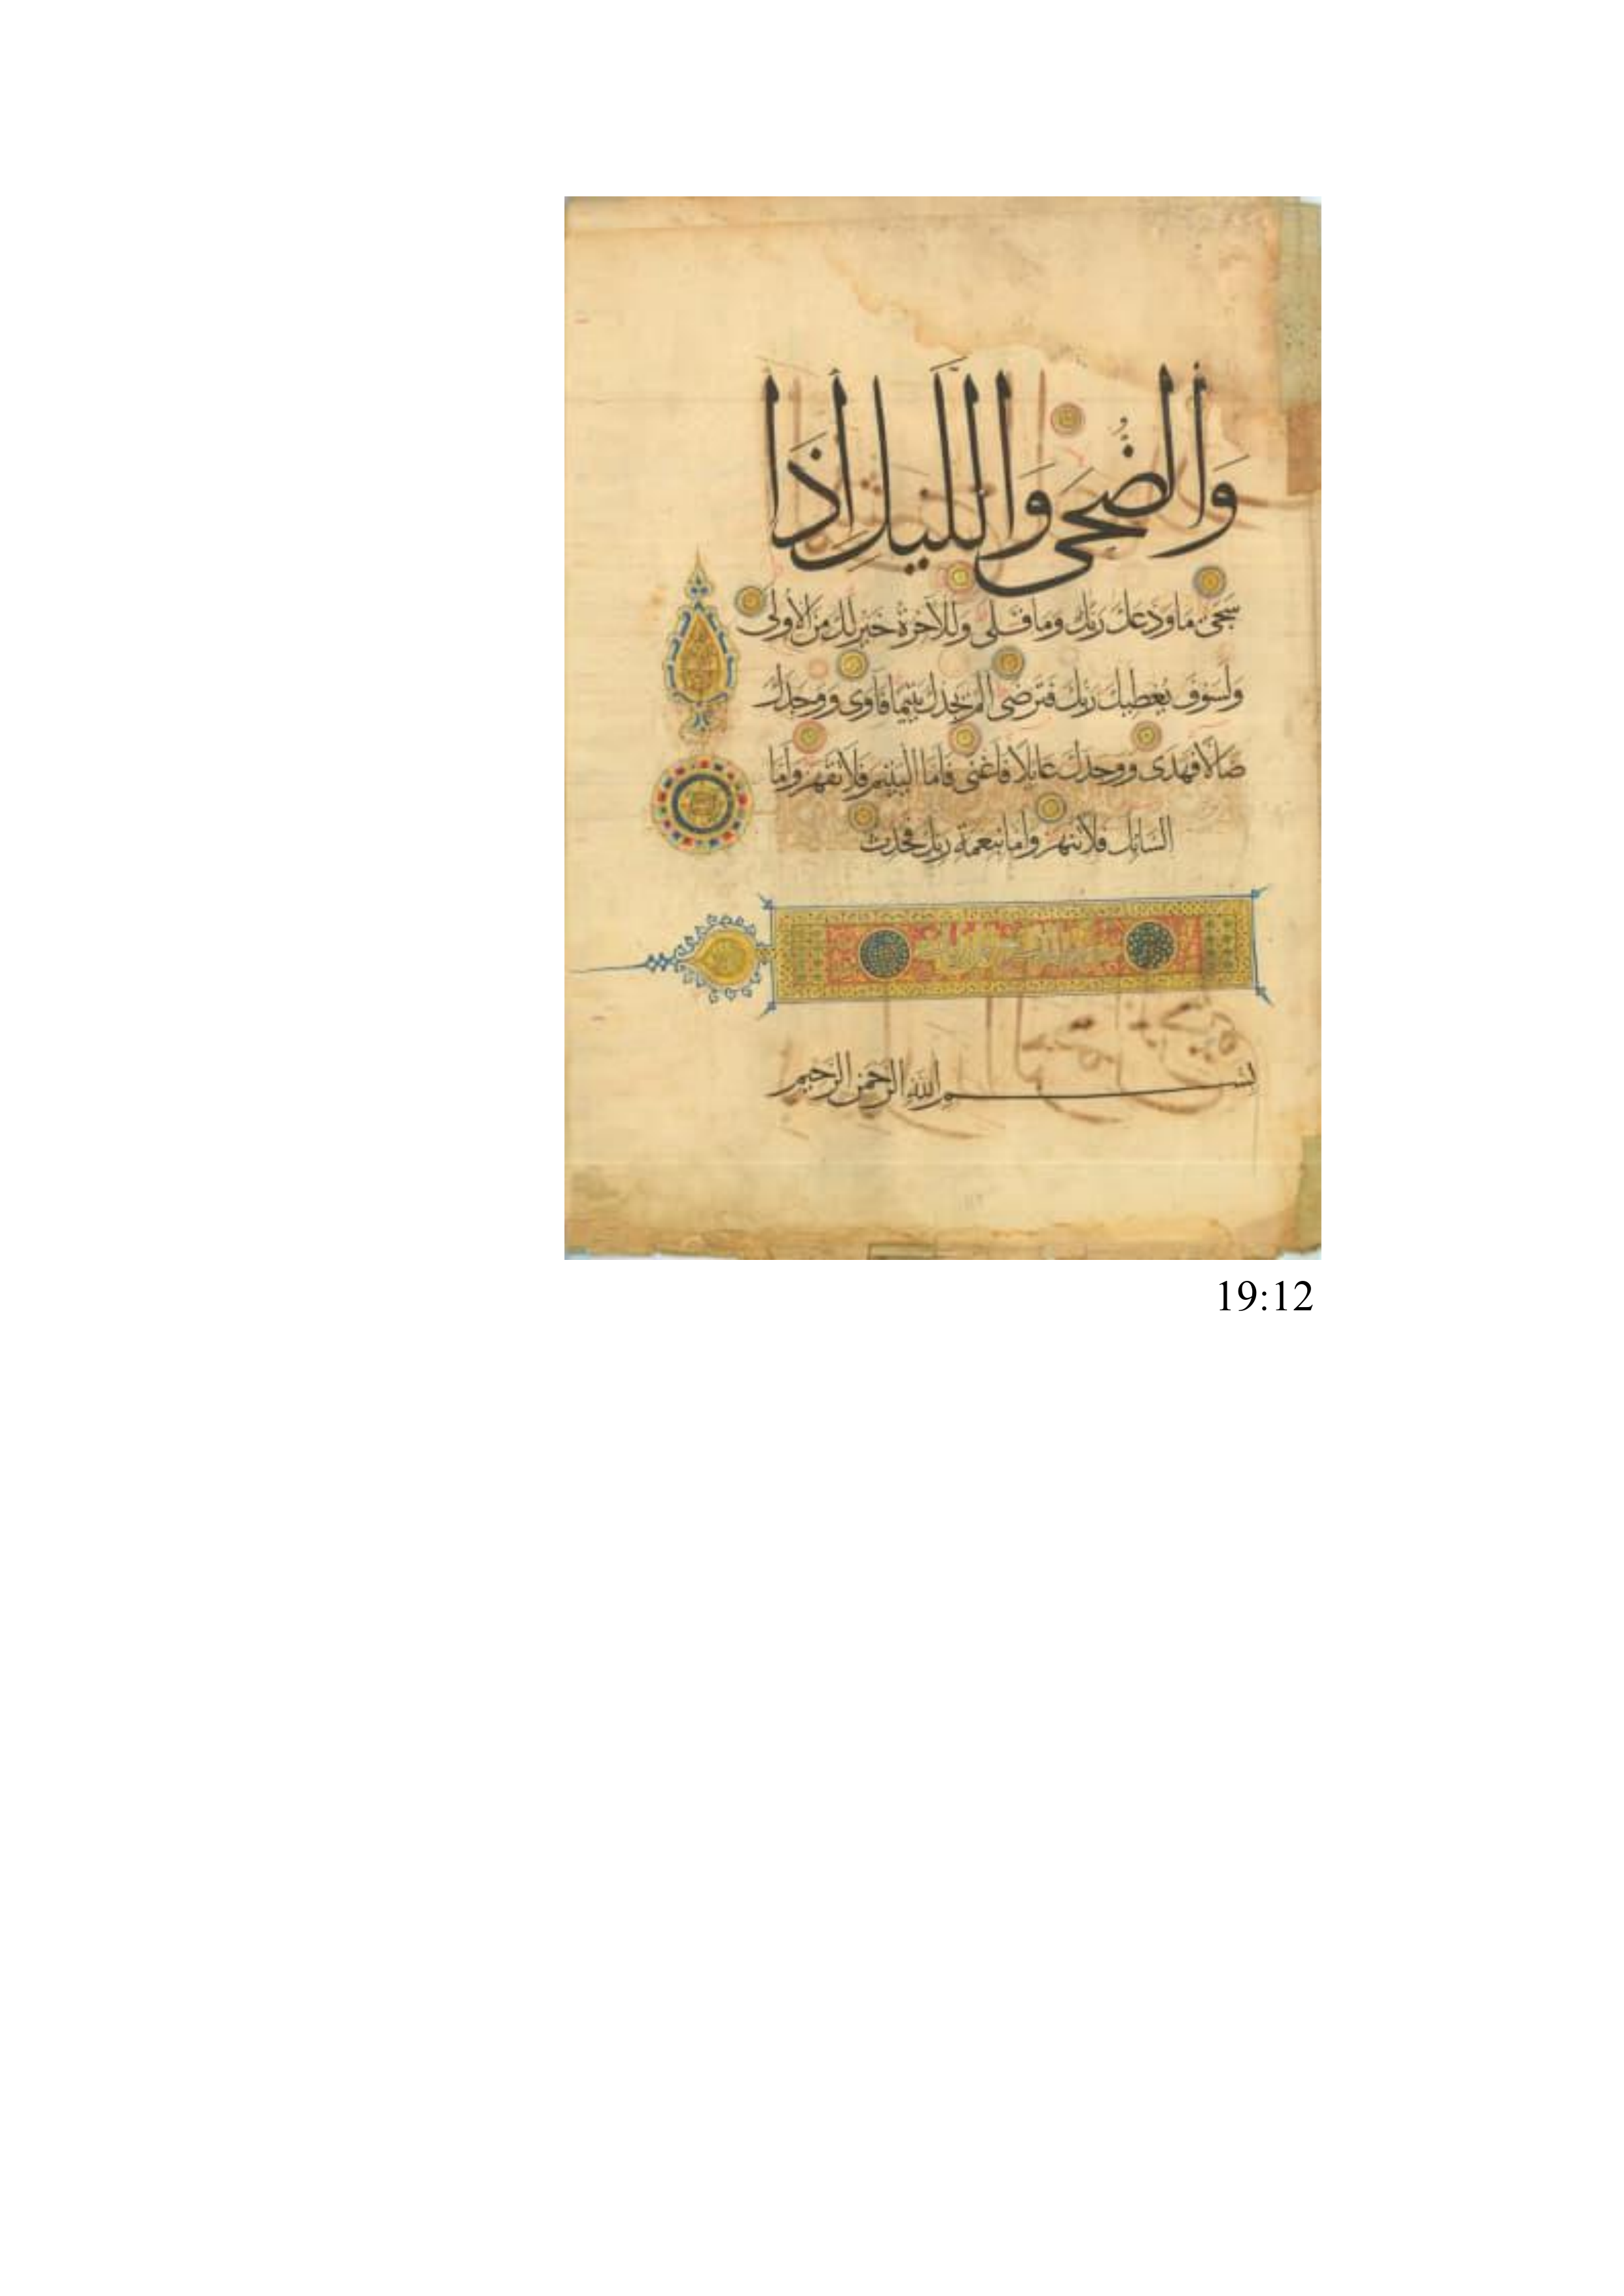 وَالضُّحَى وَاللَّيْلِ إِذَا
سجى ما ودعك ربك وما قلى وللآخرة خير لك من الأولى
ولسوف يعطيك ربك فترضى الم يجدك يتيما فآوى ووجدك
ضالا فهدى ووجدك عايلا فأغنى فاما اليتيم فلا تقهر واما
السايل فلا تنهر واما بنعمة ربك فحدث
بسم الله الرحمن الرحيم
19:12